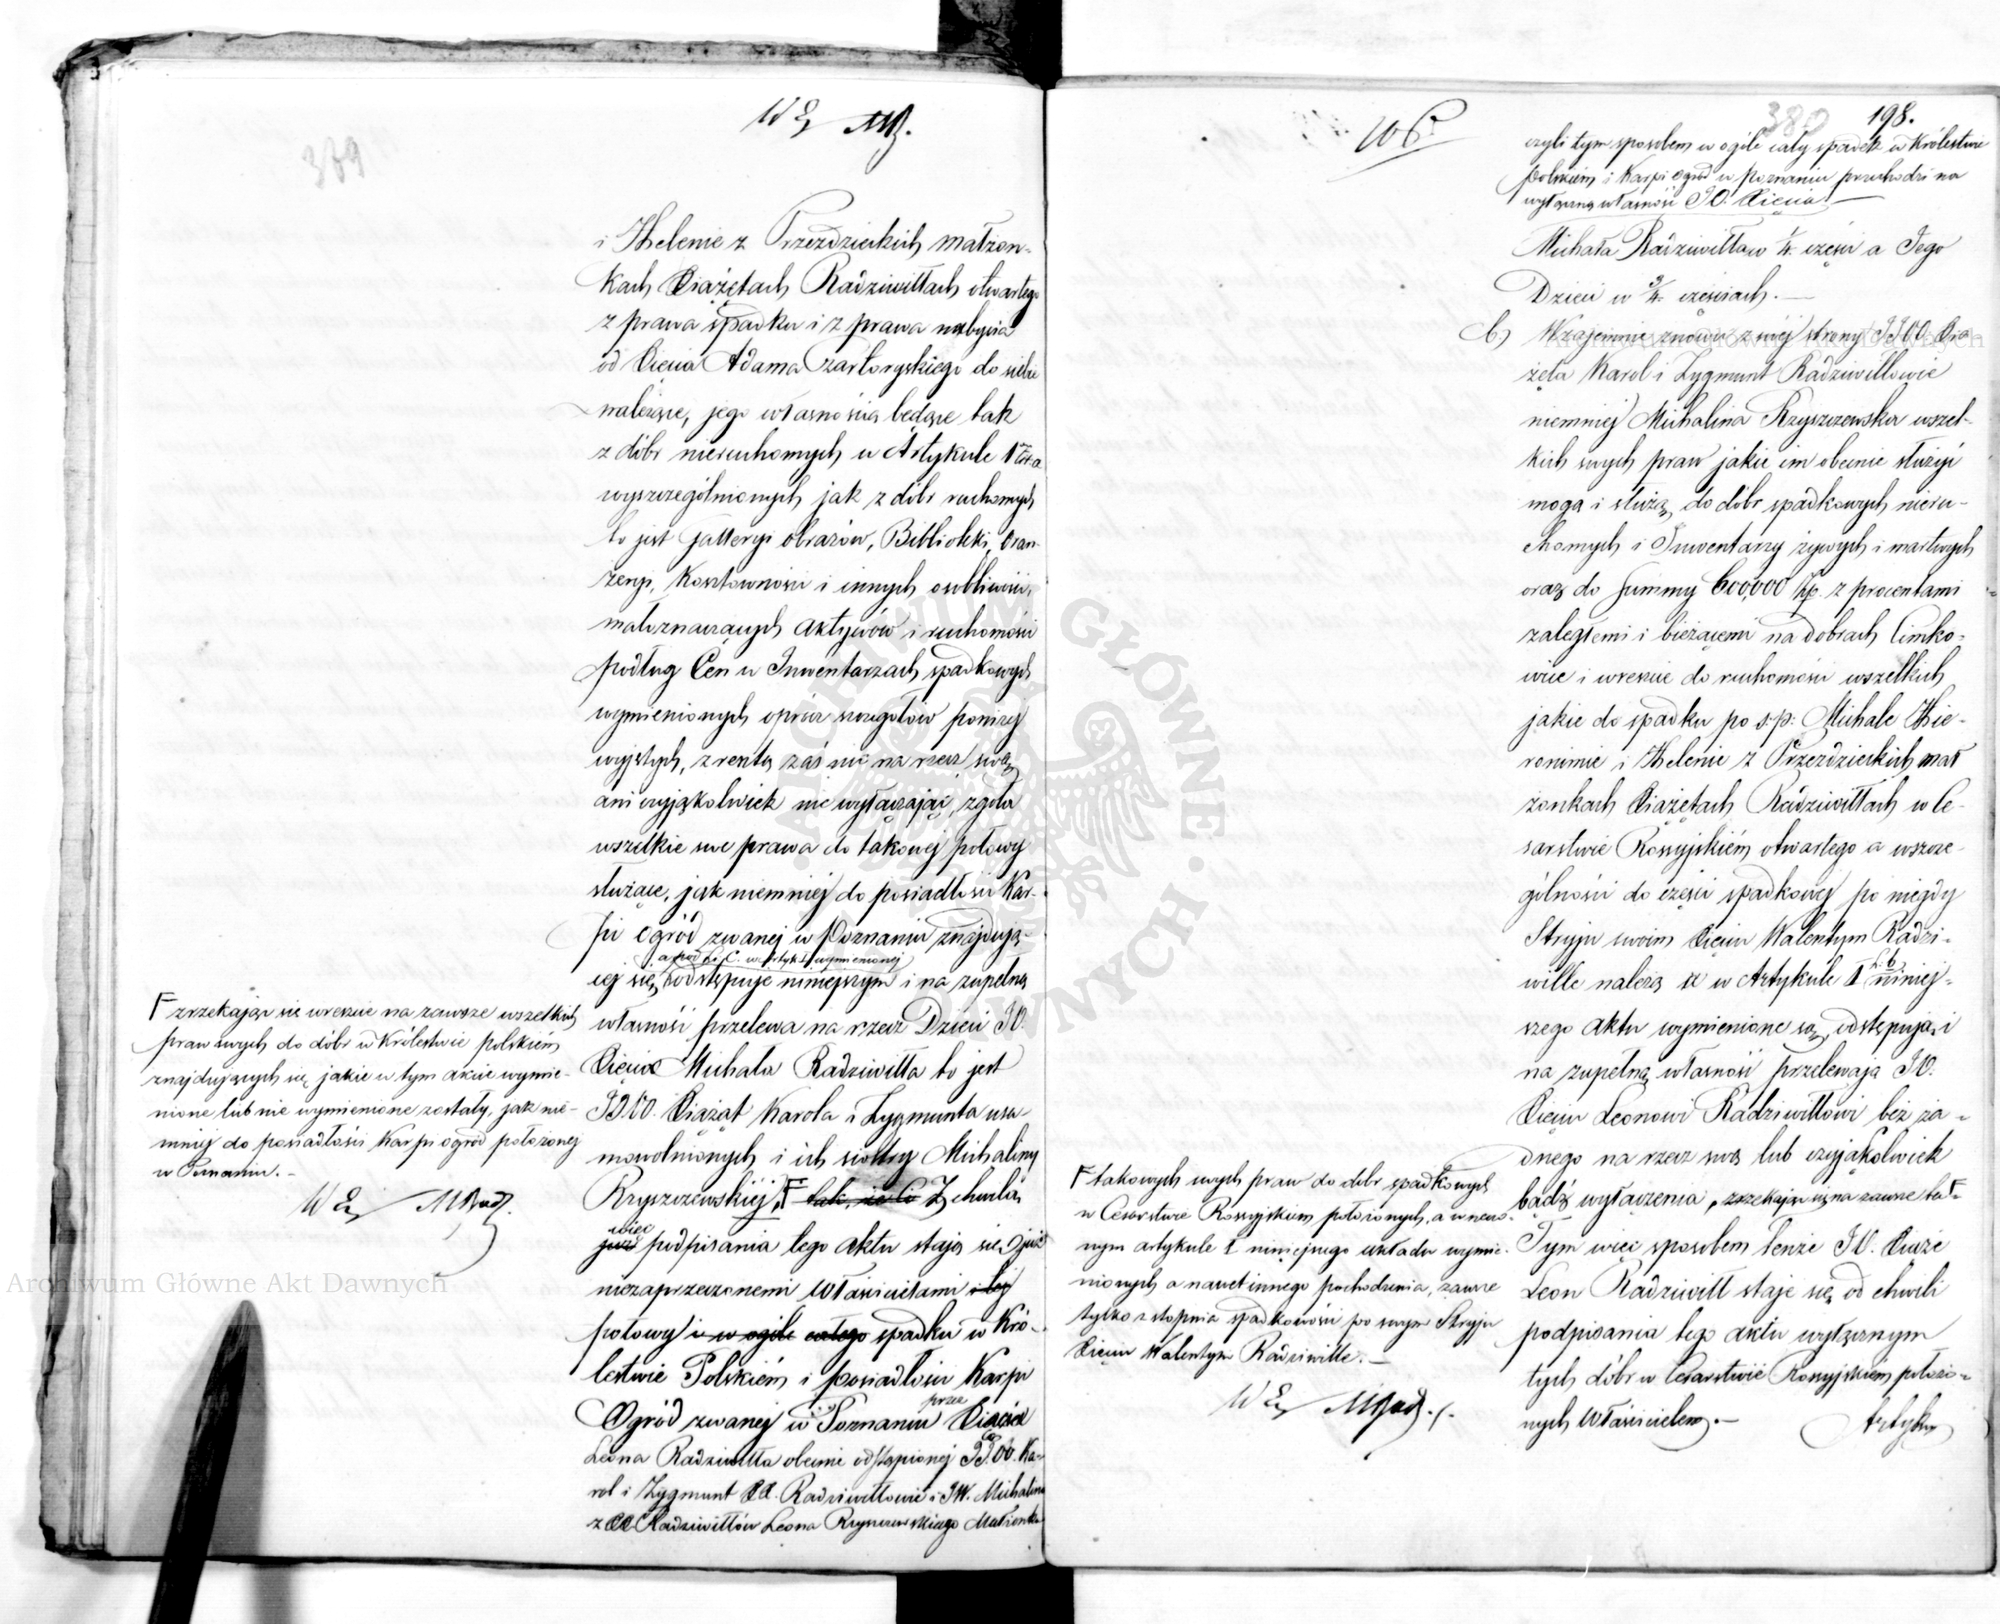 379
i Helenie z Przezdzieckich małżon-
kach Xiążętach Radziwiłłach otwartego
z prawa spadku i z prawa nabycia
od Xięcia Adama Czartoryskiego do siebie
należące, jego własnością będące tak
z dóbr nieruchomych w Artykule 1
wyszczególnionych jak z dóbr ruchomych
to jest Galleryi obrazów, Biblioteki, Oran-
żeryi, Kosztowności i innych osobliwości,
małoznaczących aktywów i ruchomości
podług Cen w Inwentarzach spadkowych
wymienionych oprócz szczegółów poniżej
wyjętych, zresztą zaś nic na rzecz swą
ani czyjąkolwiek nie wyłączając, zgoła
wszelkie swe prawa do takowej połowy
służące, jak niemniej do posiadłości Kar-
pi ogród zwanej w Poznaniu znajdują-
a pod L. C. w Artyk. 1 wymienionej
cej się, odstępuje niniejszym i na zupełną
własność przelewa na rzecz Dzieci JO.
Xięcia Michała Radziwiłła to jest
JJOO. Xiążąt Karola i Zygmunta usa-
mowolnionych i ich siostry Michaliny
Rzyszczewskiéj, F tak, że Ci Z chwilą
więc
już podpisania tego aktu stają się już
niezaprzeczonemi Właścicielami i tej
połowy i w ogóle całego spadku w Kró-
lestwie Polskiém i posiadłości Karpi
Ogród zwanej w Poznaniu przez Xięcia
Leona Radziwiłła obecnie odstąpionej JJOO. Ka-
rol i Zygmunt XX. Radziwiłłowie i JW. Michalina
z XX Radziwiłłów Leona Rzyszczewskiego Małżonka
F zrzekając się wreszcie na zawsze wszelkich
praw swych do dóbr w Królestwie polskiém
znajdujących się, jakie w tym akcie wymie-
nione lub nie wymienione zostały, jak nie-
mniej do posiadłości Karpi ogród położonej
w Poznaniu. -
MRad.
380 198.
czyli tym sposobem w ogóle cały spadek w Królestwie
Polskiém i Karpi Ogród w Poznaniu przechodzi na
wyłączną własność JO. Xięcia
Michała Radziwiłła w 1/4 części a Jego
Dzieci w 3/4 częściach. —
b) Wzajemnie znowu z swéj strony JJOO. Xią-
żęta Karol i Zygmunt Radziwiłłowie
niemniej Michalina Rzyszczewska wszel-
kich swych praw jakie im obecnie służyć
mogą i służą, do dóbr spadkowych nieru-
chomych i Inwentarzy żywych i martwych
oraz do Summy 600,000 złp. z procentami
zaległemi i bieżącemi na dobrach Cimko-
wice i wreszcie do ruchomości wszelkich
jakie do spadku po ś.p: Michale Hie-
ronimie i Helenie z Przezdzieckich mał
żonkach Xiążętach Radziwiłłach w Ce-
sarstwie Rossyjskiém otwartego a szcze-
gólności do części spadkowej po niegdy
Stryju swoim Xięciu Walentym Radzi-
wille należą i w Artykule 1 L. b niniej-
szego aktu wymienione są, odstępują i
na zupełną własność przelewają JO.
Xięciu Leonowi Radziwiłłowi bez ża-
dnego na rzecz swą lub czyjąkolwiek
bądź wyłączenia, zrzekając się na zawsze F
Tym więc sposobem tenże JO. Xiążę
Leon Radziwiłł staje się od chwili
podpisania tego aktu wyłącznym
tych dóbr w Cesarstwie Rossyjskiém położo-
nych Właścicielem. —
Artykuł
F takowych swych praw do dóbr spadkowych
w Cesarstwie Rossyjskiem położonych, a w
nym artykule 1 niniejszego układu wymie-
nionych a nawet innego pochodzenia, zawsze
tylko z stopnia spadkowości po swym Stryju
Xięciu Walentym Radziwille. —
MRad.
ARCHIWUM GŁÓWNE AKT DAWNYCH
Archiwum Główne Akt Dawnych
Archiwum Główne Akt Dawnych